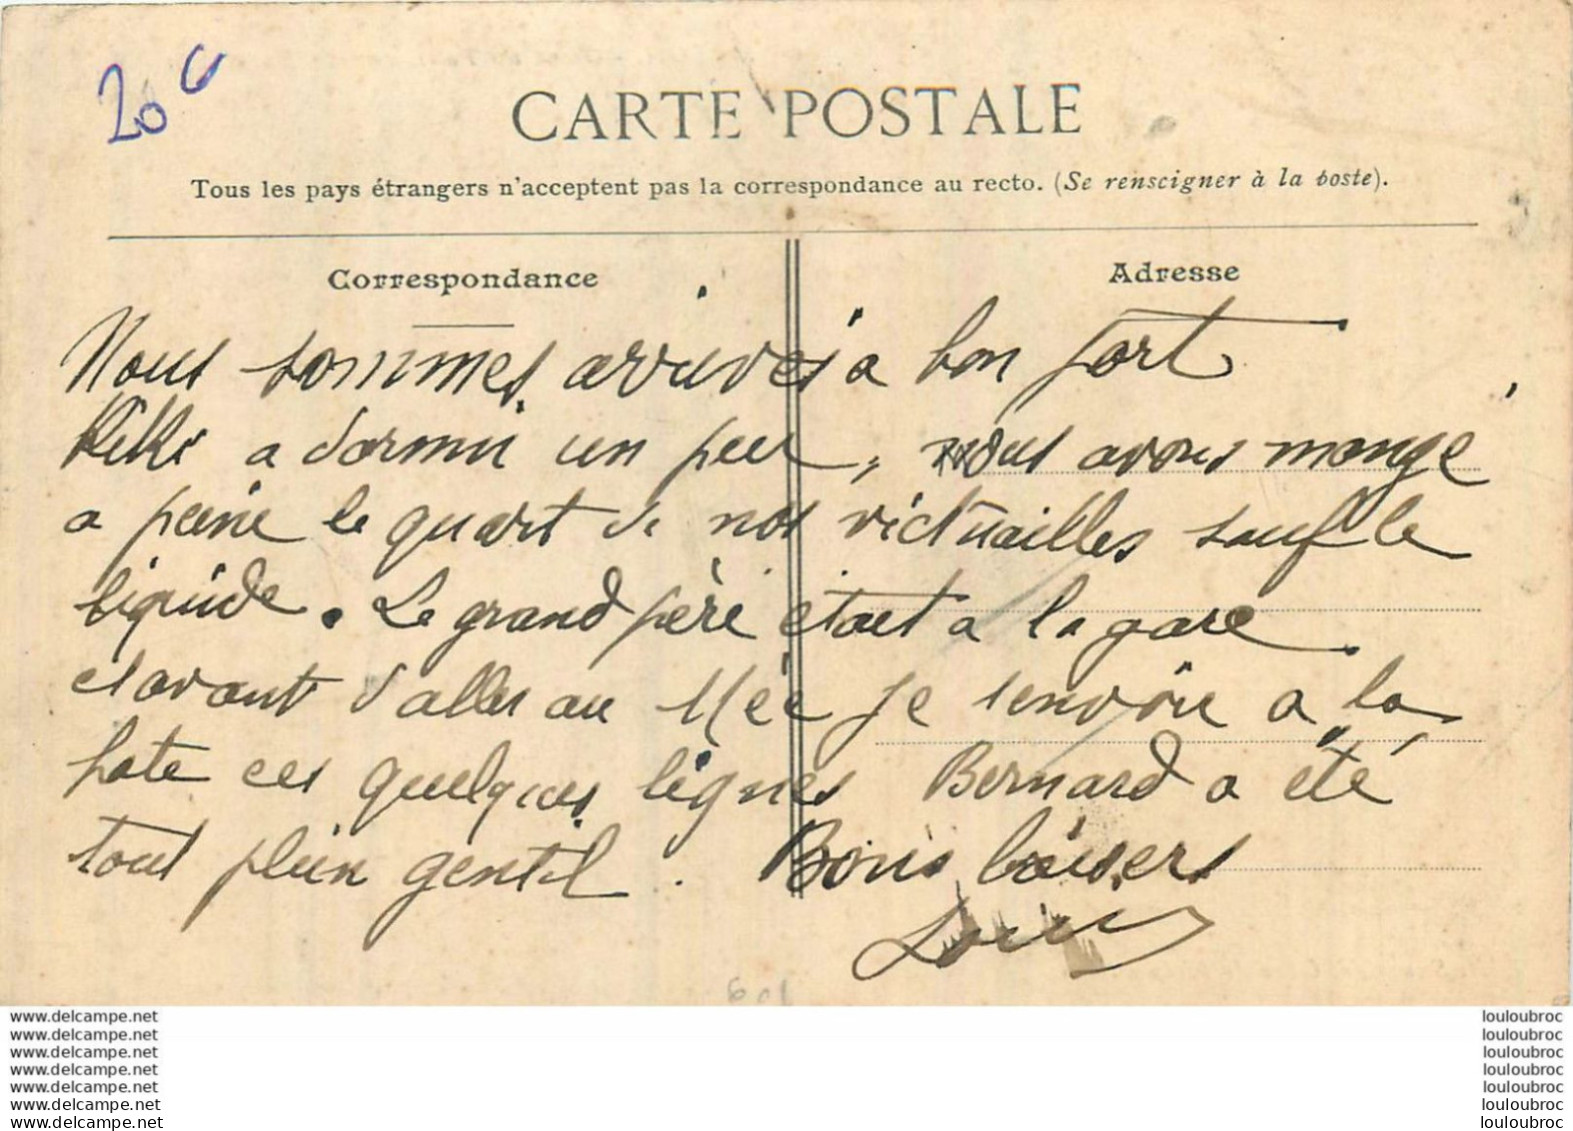 20 c
CARTE POSTALE
Tous les pays étrangers n'acceptent pas la correspondance au recto. (Se renseigner à la poste).
Correspondance
Adresse
Nous sommes arrivés a bon port
Kiki a dormi un peu, nous avons mangé
a peine le quart de nos victuailles sauf le
liquide. Le grand père etait a la gare
et avant d'aller au Mée je t'envoie a la
hate ces quelques lignes Bernard a été
tout plein gentil. Bons baisers
Louis
109
www.delcampe.net
www.delcampe.net
www.delcampe.net
www.delcampe.net
www.delcampe.net
www.delcampe.net
www.delcampe.net
louloubroc
louloubroc
louloubroc
louloubroc
louloubroc
louloubroc
louloubroc